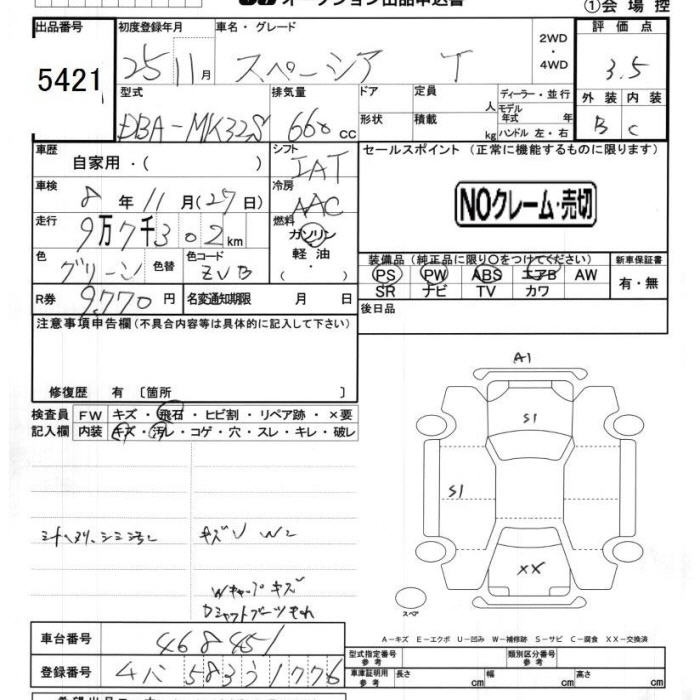 オークション出品申込書
①会場控
出品番号
5421
初度登録年月
25 11月
車名・グレード
スペーシア T
2WD
・
4WD
評価点
3.5
外装 内装
B C
型式
DBA-MK32S
排気量
660 cc
ドア
形状
定員
人
積載
kg
ディーラー・並行
モデル年式 年
ハンドル 左・右
車歴
自家用・( )
シフト
IAT
セールスポイント(正常に機能するものに限ります)
NOクレーム・売切
車検
8年11月(27日)
冷房
AAC
走行
9万7千302km
燃料
ガソリン
軽油・
( )
色
グリーン
色替
色コード
ZVB
装備品(純正品に限り〇をつけてください)
PS PW ABS エアB AW
SR ナビ TV カワ
新車保証書
有・無
R券
9,770円
名変通知期限 月 日
後日品
注意事項申告欄(不具合内容等は具体的に記入して下さい)
修復歴 有 〔箇所 〕
検査員
記入欄
FW キズ・飛石・ヒビ割・リペア跡・×要
内装 キズ・汚レ・コゲ・穴・スレ・キレ・破レ
A1
S1
S1
XX
スペア
キズ W2
Wキャップキズ
A-キズ E-エクボ U-凹み W-補修跡 S-サビ C-腐食 XX-交換済
車台番号
468451
型式指定番号
参考
類別区分番号
参考
登録番号
車庫証明用
参考
長さ cm
幅 cm
高さ cm